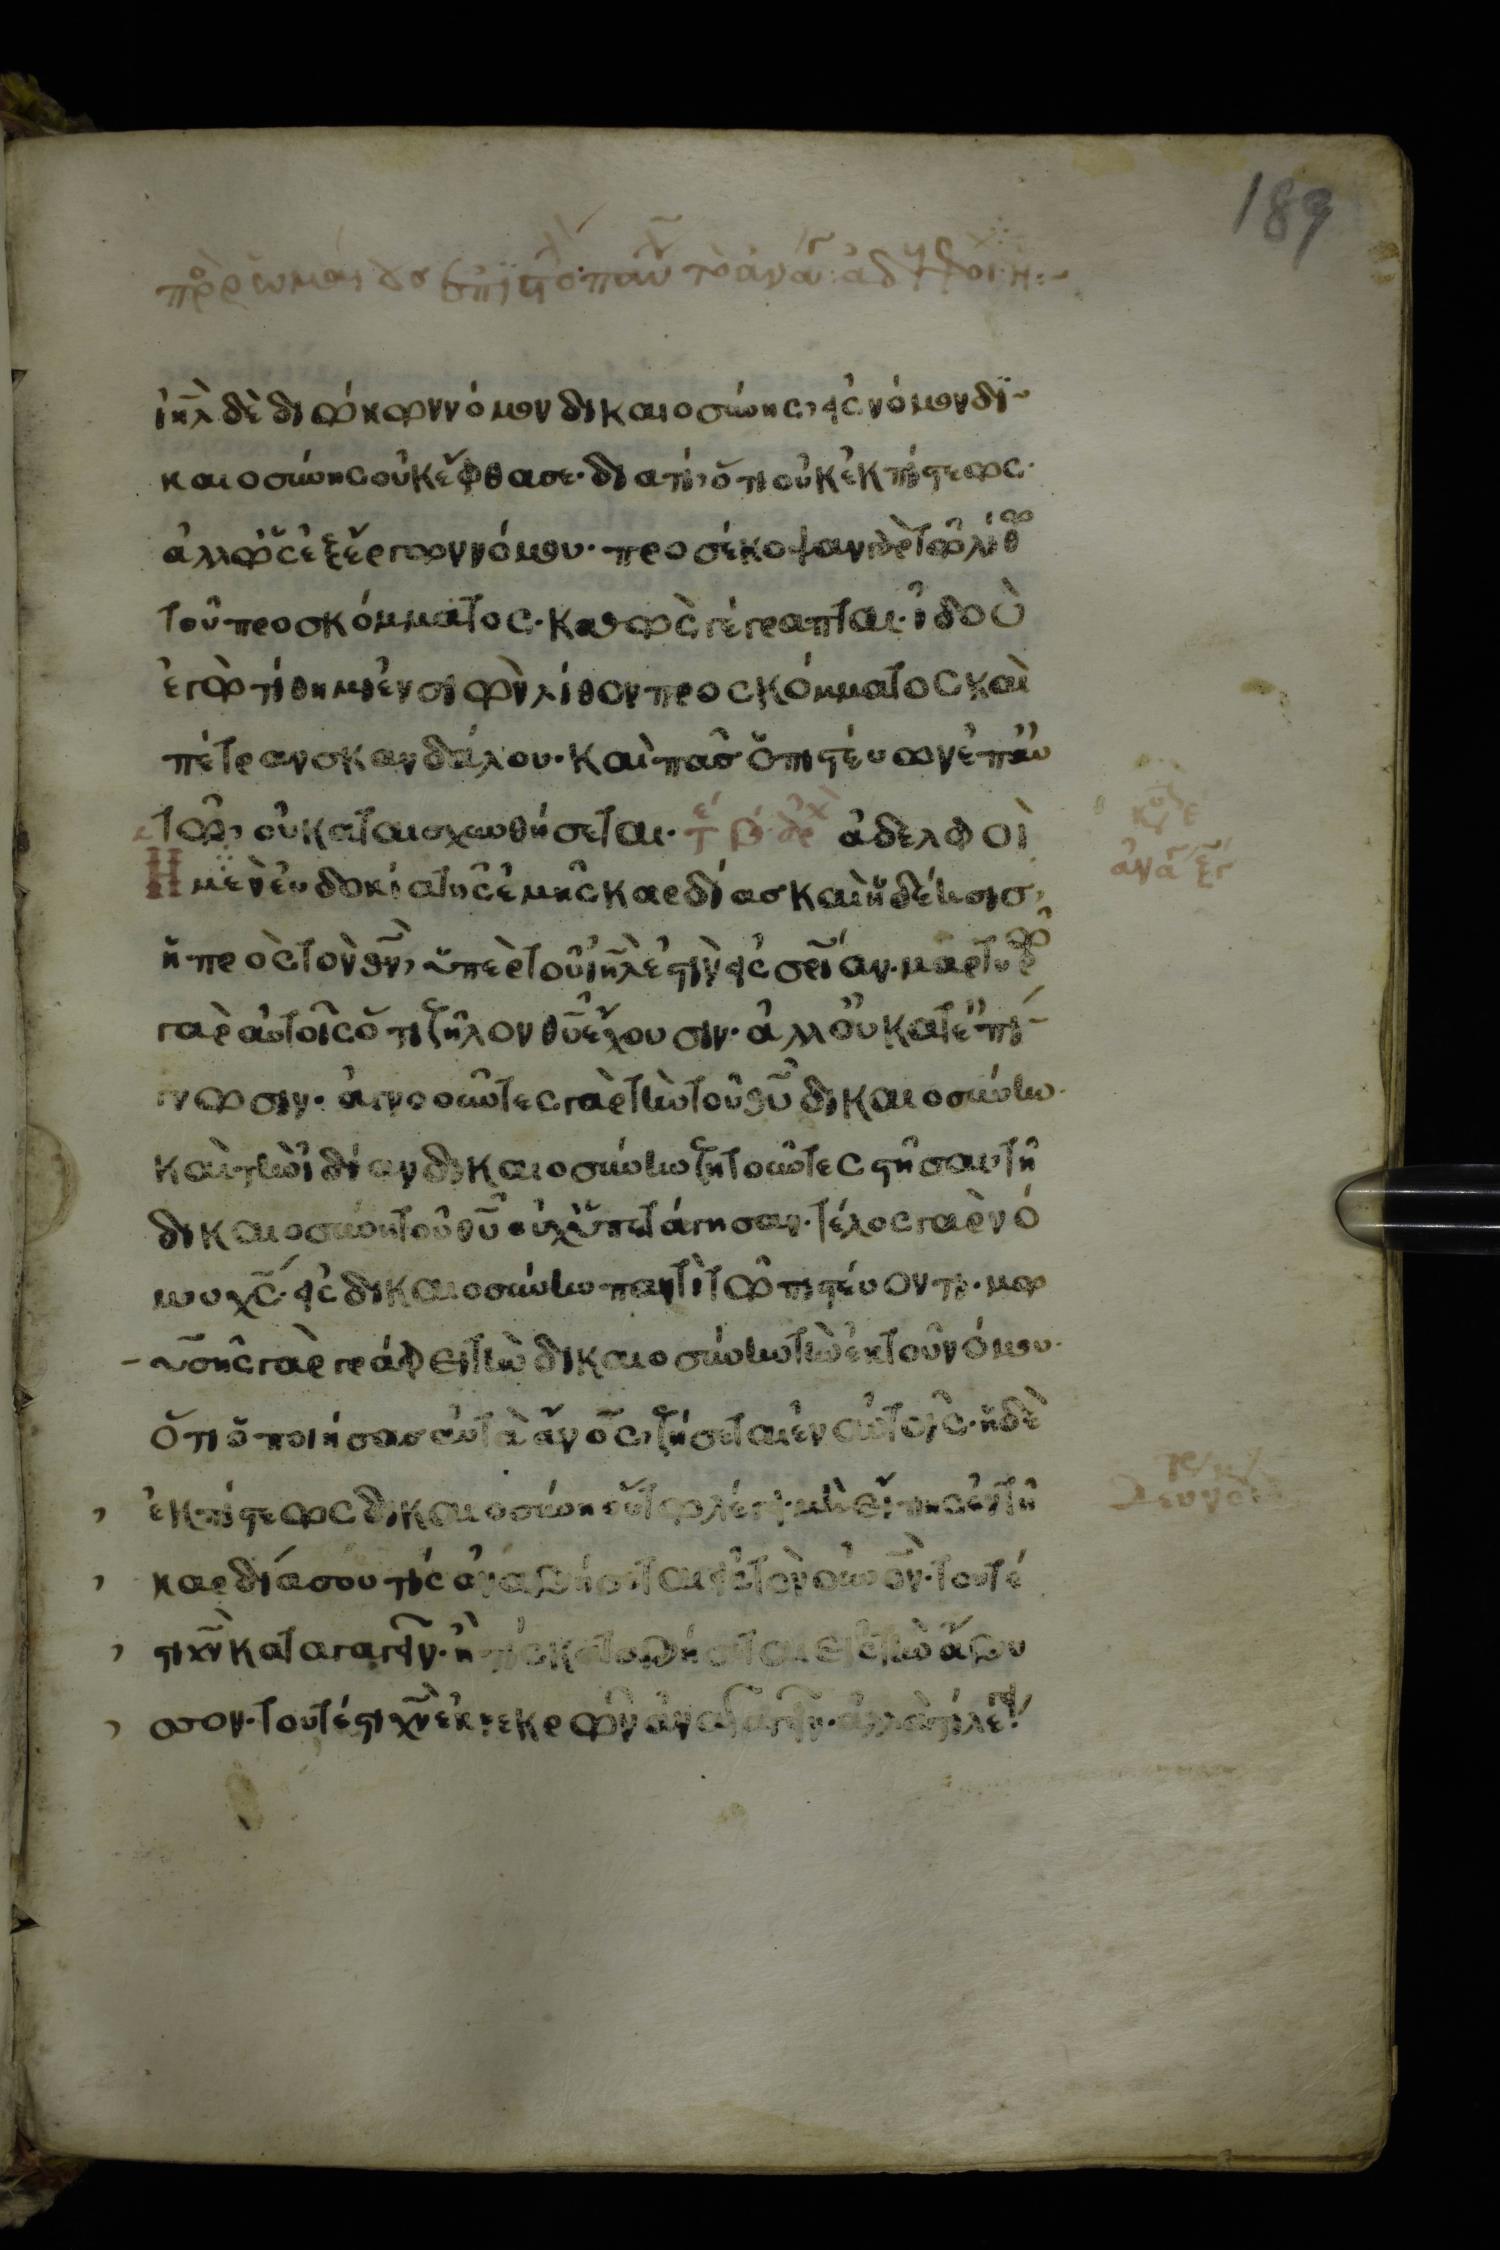 189
ἰη̅λ δὲ διώκων νόμον δικαιοσύνης, εἰς νόμον δι
καιοσύνης οὐκ ἔφθασε· διατί, ὅτι οὐκ ἐκ πίστεως·
ἀλλ' ὡς ἐξ ἔργων νόμου· προσέκοψαν γὰρ τῶ λίθω
τοῦ προσκόμματος· καθὼς γέγραπται· ἰδοὺ
ἐγὼ τίθημι ἐν σιὼν λίθον προσκόμματος καὶ
πέτραν σκανδάλου· καὶ πᾶς ὁ πιστεύων ἐπ' αὐ
τῶ, οὐ καταισχυνθήσεται· ἀδελφοὶ
Η μὲν εὐδοκία τῆς ἐμῆς καρδίας καὶ ἡ δέησις,
ἡ πρὸς τὸν θ̅ν̅, ὑπὲρ τοῦ ἰη̅λ ἐστὶν εἰς σρ̅ίαν· μαρτυρῶ
γὰρ αὐτοῖς ὅτι ζῆλον θ̅υ̅ ἔχουσιν· ἀλλ' οὐ κατ' ἐπί
γνωσιν· ἀγνοοῦντες γὰρ τὴν τοῦ θ̅υ̅ δικαιοσύνην·
καὶ τὴν ἰδίαν δικαιοσύνην ζητοῦντες στῆσαι τῆ
δικαιοσύνη τοῦ θ̅υ̅ οὐχ ὑπετάγησαν· τέλος γὰρ νό
μου χ̅ς̅· εἰς δικαιοσύνην παντὶ τῶ πιστεύοντι· μω
ϋσῆς γὰρ γράφει τὴν δικαιοσύνην τὴν ἐκ τοῦ νόμου·
ὅτι ὁ ποιήσας αὐτὰ ἄν̅ο̅ς̅, ζήσεται ἐν αὐτοῖς· ἡ δὲ
ἐκ πίστεως δικαιοσύνη οὕτω λέγει· μὴ εἴπης ἐν τῆ
καρδία σου τίς ἀναβήσεται εἰς τὸν οὐν̅ο̅ν̅· τουτέ
στι χ̅ν̅ καταγαγεῖν· ἢ τίς καταβήσεται εἰς τὴν ἄβυ
σσον· τουτέστι χ̅ν̅ ἐκ νεκρῶν ἀναγαγεῖν· ἀλλὰ τί λέγει